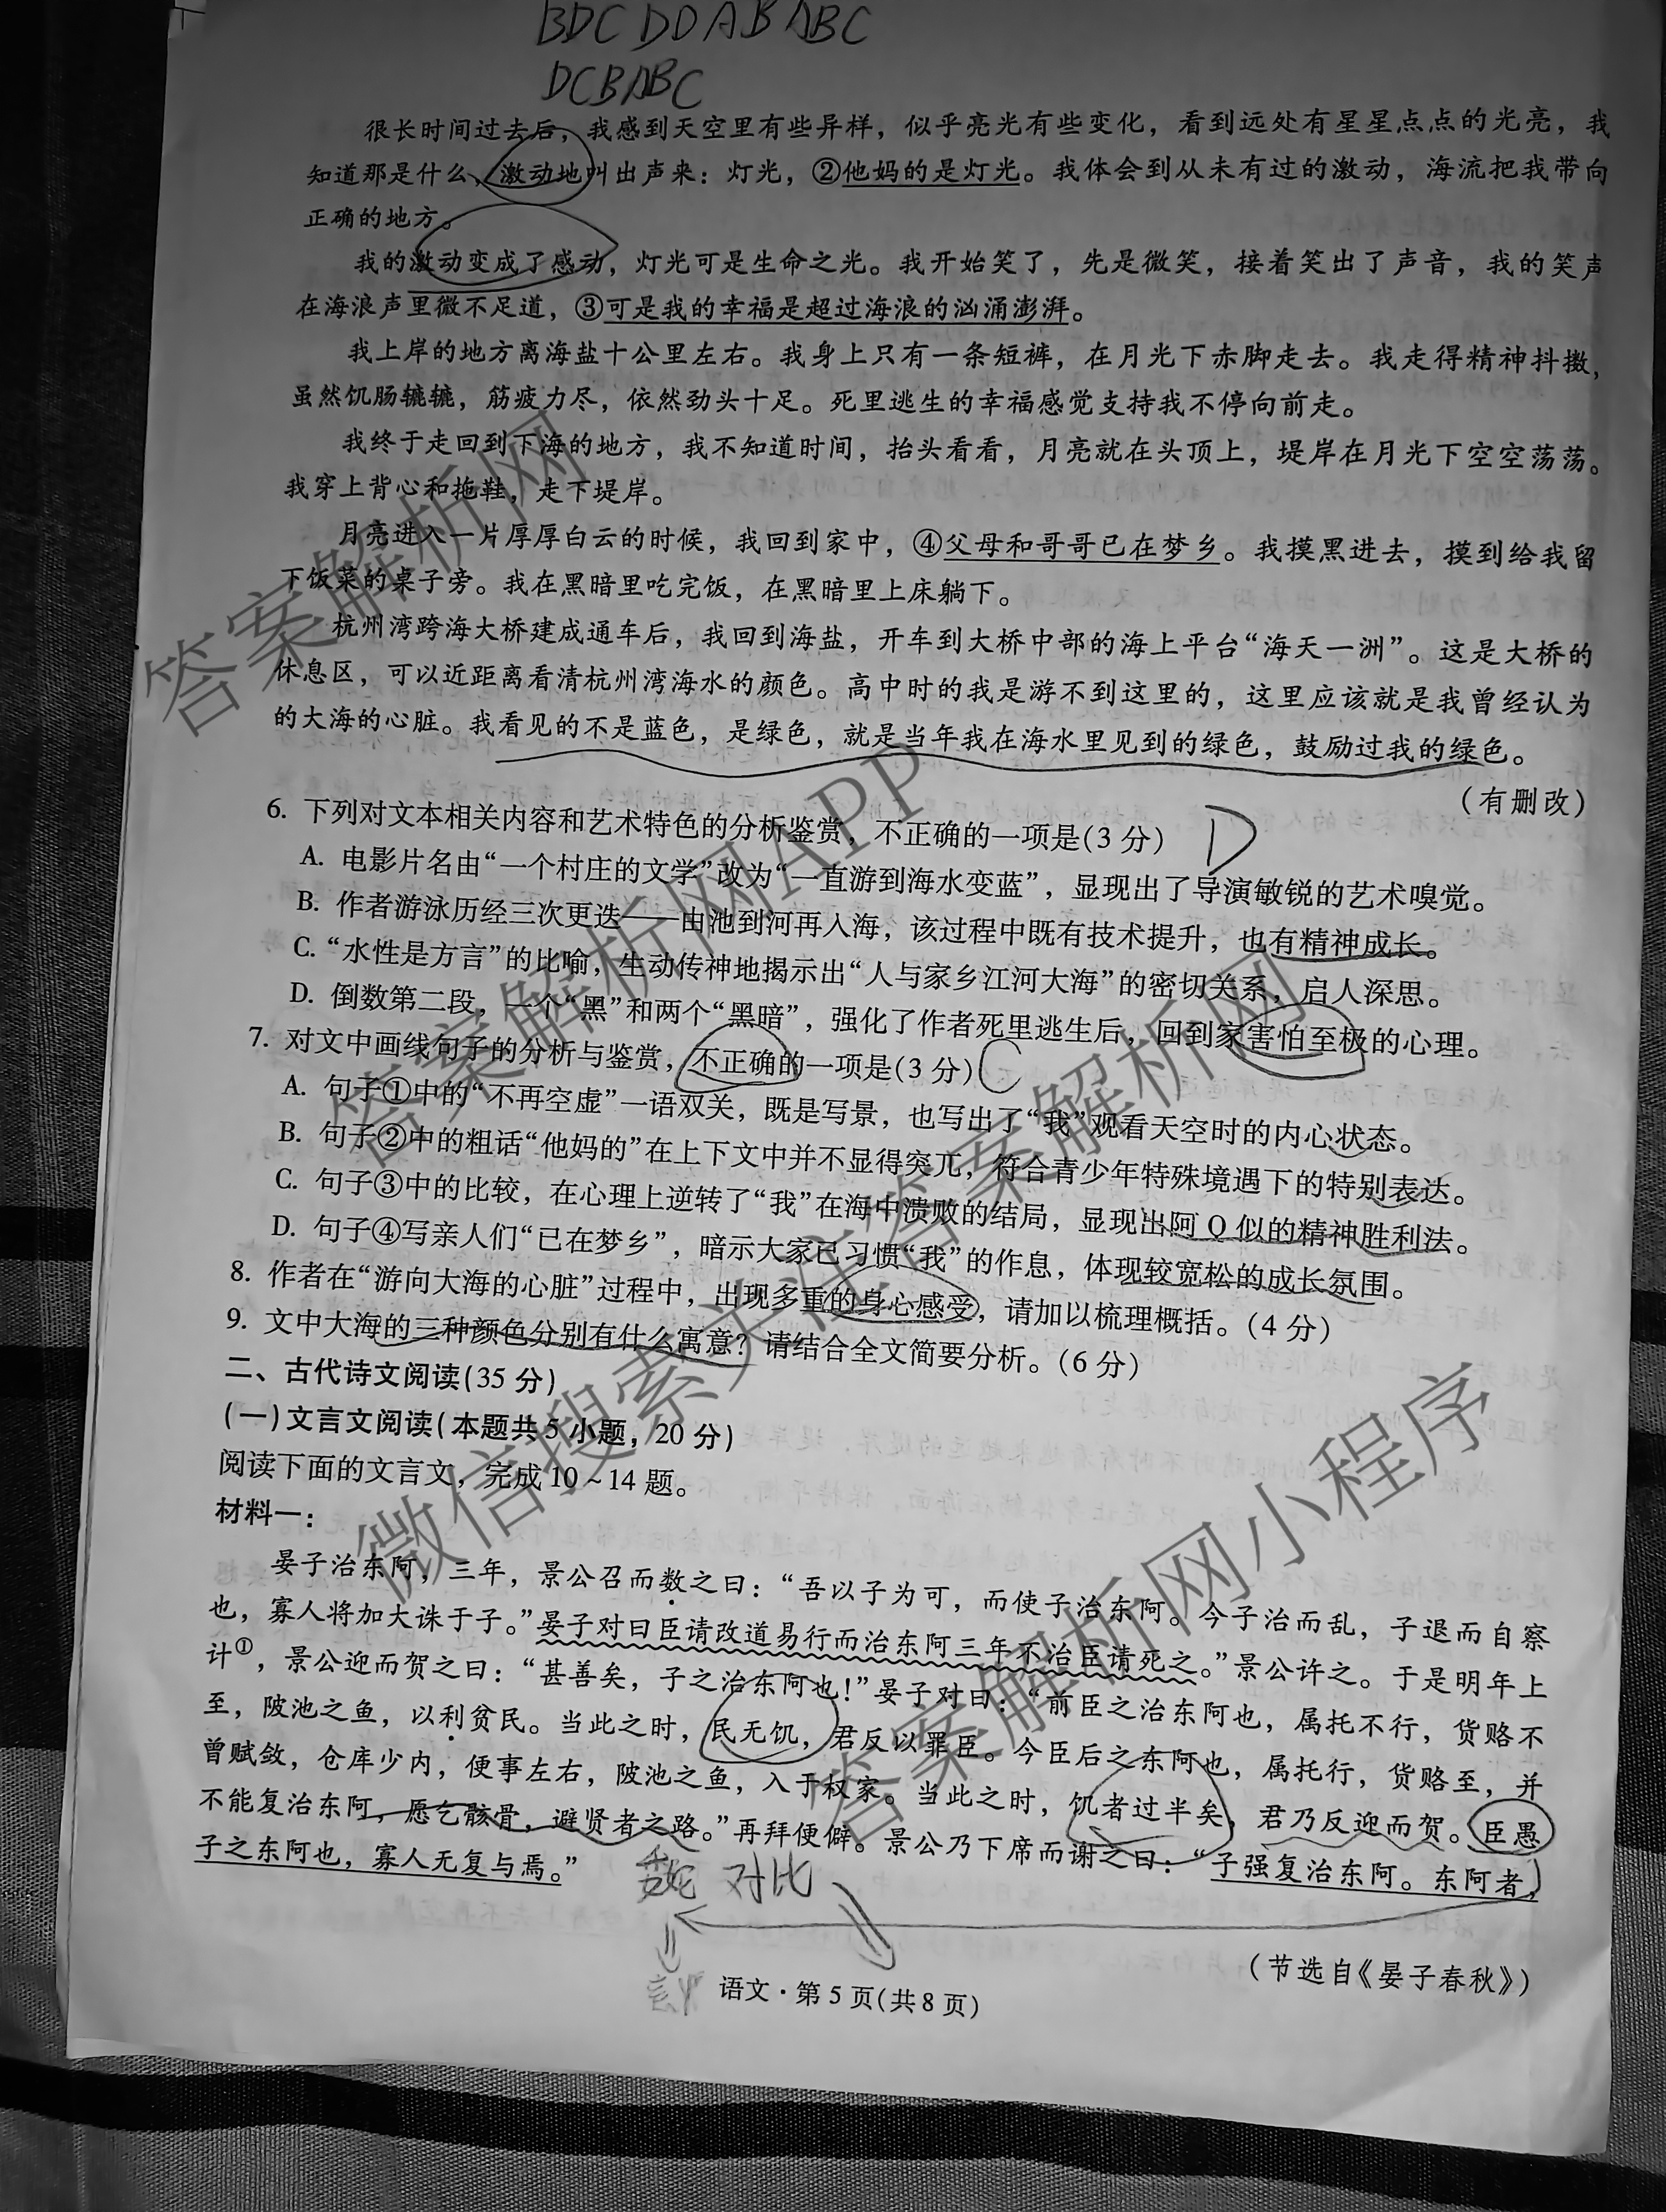 BDCDDABABC
DCBABC
很长时间过去后，我感到天空里有些异样，似乎亮光有些变化，看到远处有星星点点的光亮，我
知道那是什么，激动地叫出声来：灯光，②他妈的是灯光。我体会到从未有过的激动，海流把我带向
正确的地方。
我的激动变成了感动，灯光可是生命之光。我开始笑了，先是微笑，接着笑出了声音，我的笑声
在海浪声里微不足道，③可是我的幸福是超过海浪的汹涌澎湃。
我上岸的地方离海盐十公里左右。我身上只有一条短裤，在月光下赤脚走去。我走得精神抖擞，
虽然饥肠辘辘，筋疲力尽，依然劲头十足。死里逃生的幸福感觉支持我不停向前走。
我终于走回到下海的地方，我不知道时间，抬头看看，月亮就在头顶上，堤岸在月光下空空荡荡。
我穿上背心和拖鞋，走下堤岸。
月亮进入一片厚厚白云的时候，我回到家中，④父母和哥哥已在梦乡。我摸黑进去，摸到给我留
下饭菜的桌子旁。我在黑暗里吃完饭，在黑暗里上床躺下。
杭州湾跨海大桥建成通车后，我回到海盐，开车到大桥中部的海上平台“海天一洲”。这是大桥的
休息区，可以近距离看清杭州湾海水的颜色。高中时的我是游不到这里的，这里应该就是我曾经认为
的大海的心脏。我看见的不是蓝色，是绿色，就是当年我在海水里见到的绿色，鼓励过我的绿色。
（有删改）
6. 下列对文本相关内容和艺术特色的分析鉴赏，不正确的一项是(3 分) D
A. 电影片名由“一个村庄的文学”改为“一直游到海水变蓝”，显现出了导演敏锐的艺术嗅觉。
B. 作者游泳历经三次更迭——由池到河再入海，该过程中既有技术提升，也有精神成长。
C. “水性是方言”的比喻，生动传神地揭示出“人与家乡江河大海”的密切关系，启人深思。
D. 倒数第二段，一个“黑”和两个“黑暗”，强化了作者死里逃生后，回到家害怕至极的心理。
7. 对文中画线句子的分析与鉴赏，不正确的一项是(3 分) C
A. 句子①中的“不再空虚”一语双关，既是写景，也写出了“我”观看天空时的内心状态。
B. 句子②中的粗话“他妈的”在上下文中并不显得突兀，符合青少年特殊境遇下的特别表达。
C. 句子③中的比较，在心理上逆转了“我”在海中溃败的结局，显现出阿 Q 似的精神胜利法。
D. 句子④写亲人们“已在梦乡”，暗示大家已习惯“我”的作息，体现较宽松的成长氛围。
8. 作者在“游向大海的心脏”过程中，出现多重的身心感受，请加以梳理概括。(4 分)
9. 文中大海的三种颜色分别有什么寓意？请结合全文简要分析。(6 分)
二、古代诗文阅读(35 分)
(一)文言文阅读(本题共 5 小题，20 分)
阅读下面的文言文，完成 10～14 题。
材料一：
晏子治东阿，三年，景公召而数之曰：“吾以子为可，而使子治东阿。今子治而乱，子退而自察
也，寡人将加大诛于子。”晏子对曰臣请改道易行而治东阿三年不治臣请死之。”景公许之。于是明年上
计①，景公迎而贺之曰：“甚善矣，子之治东阿也！”晏子对曰：“前臣之治东阿也，属托不行，货赂不
至，陂池之鱼，以利贫民。当此之时，民无饥，君反以罪臣。今臣后之东阿也，属托行，货赂至，并
曾赋敛，仓库少内，便事左右，陂池之鱼，入于权家。当此之时，饥者过半矣，君乃反迎而贺。臣愚
不能复治东阿，愿乞骸骨，避贤者之路。”再拜便僻。景公乃下席而谢之曰：“子强复治东阿。东阿者，
子之东阿也，寡人无复与焉。”
对比
（节选自《晏子春秋》）
语文·第 5 页(共 8 页)
答案解析网
答案解析网APP
微信搜索关注答案解析网
答案解析网小程序